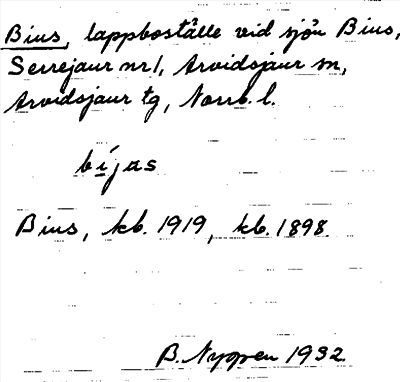 Bius, lappboställe vid sjön Bius,
Serrejaur nr 1, Arvidsjaur sn,
Arvidsjaur tg, Norrb. l.
bíjas
Bius, kb. 1919, kb. 1898.
B. Nygren 1932.